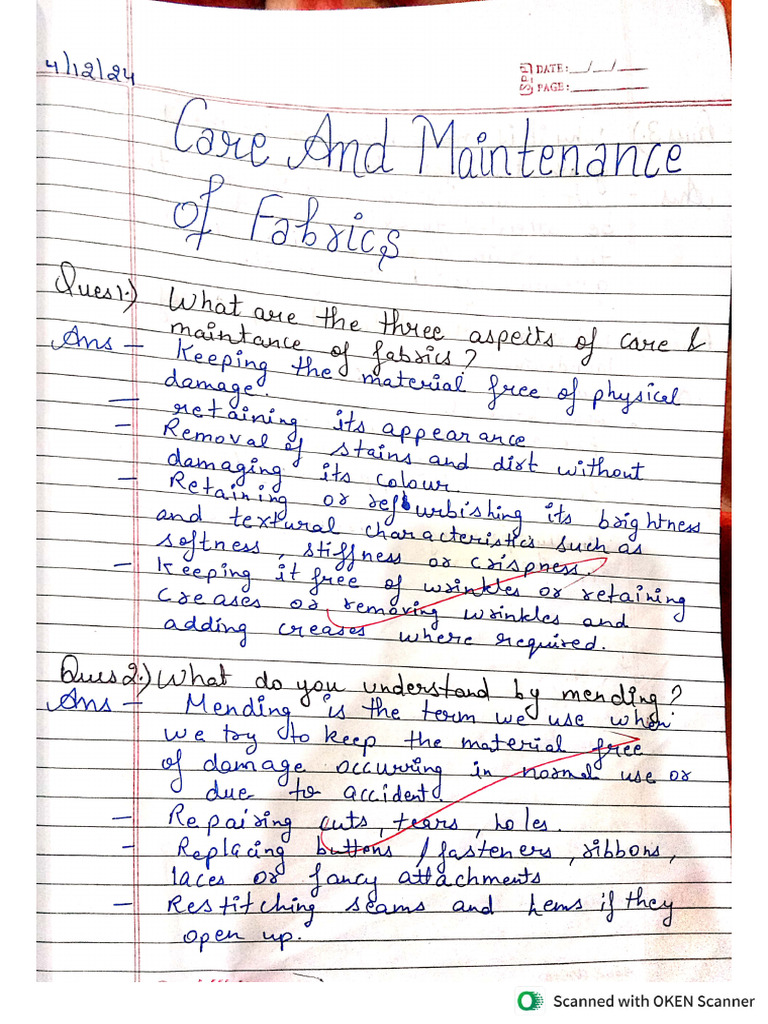 4/12/24
DATE: __/__/____
PAGE: ________
Care And Maintenance
of Fabrics
Ques 1.) What are the three aspects of care &
maintance of fabrics?
Ans - Keeping the material free of physical
damage.
- retaining its appearance
- Removal of stains and dirt without
damaging its colour
- Retaining or refurbishing its brightness
and textural characteristics such as
softness, stiffness or crispness.
- Keeping it free of wrinkles or retaining
creases or removing wrinkles and
adding creases where required.
Ques 2.) What do you understand by mending?
Ans - Mending is the term we use when
we try to keep the material free
of damage occurring in normal use or
due to accident.
- Repairing cuts, tears, holes.
- Replacing buttons / fasteners, ribbons,
laces or fancy attachments
- Restitching seams and hems if they
open up.
Scanned with OKEN Scanner